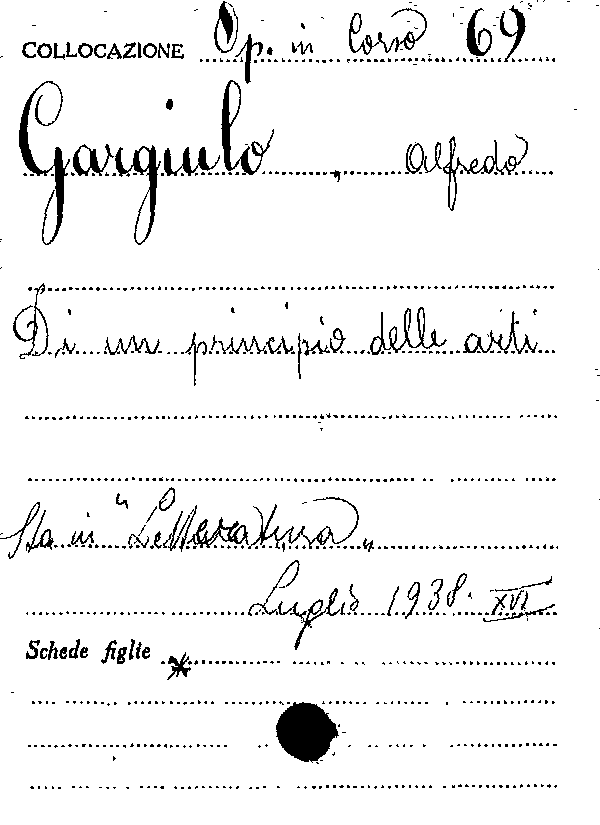 COLLOCAZIONE Op. in Corso 69
Gargiulo, Alfredo
Di un principio delle arti
Sta in "Letteratura„
Luglio 1938. XVI
Schede figlie *